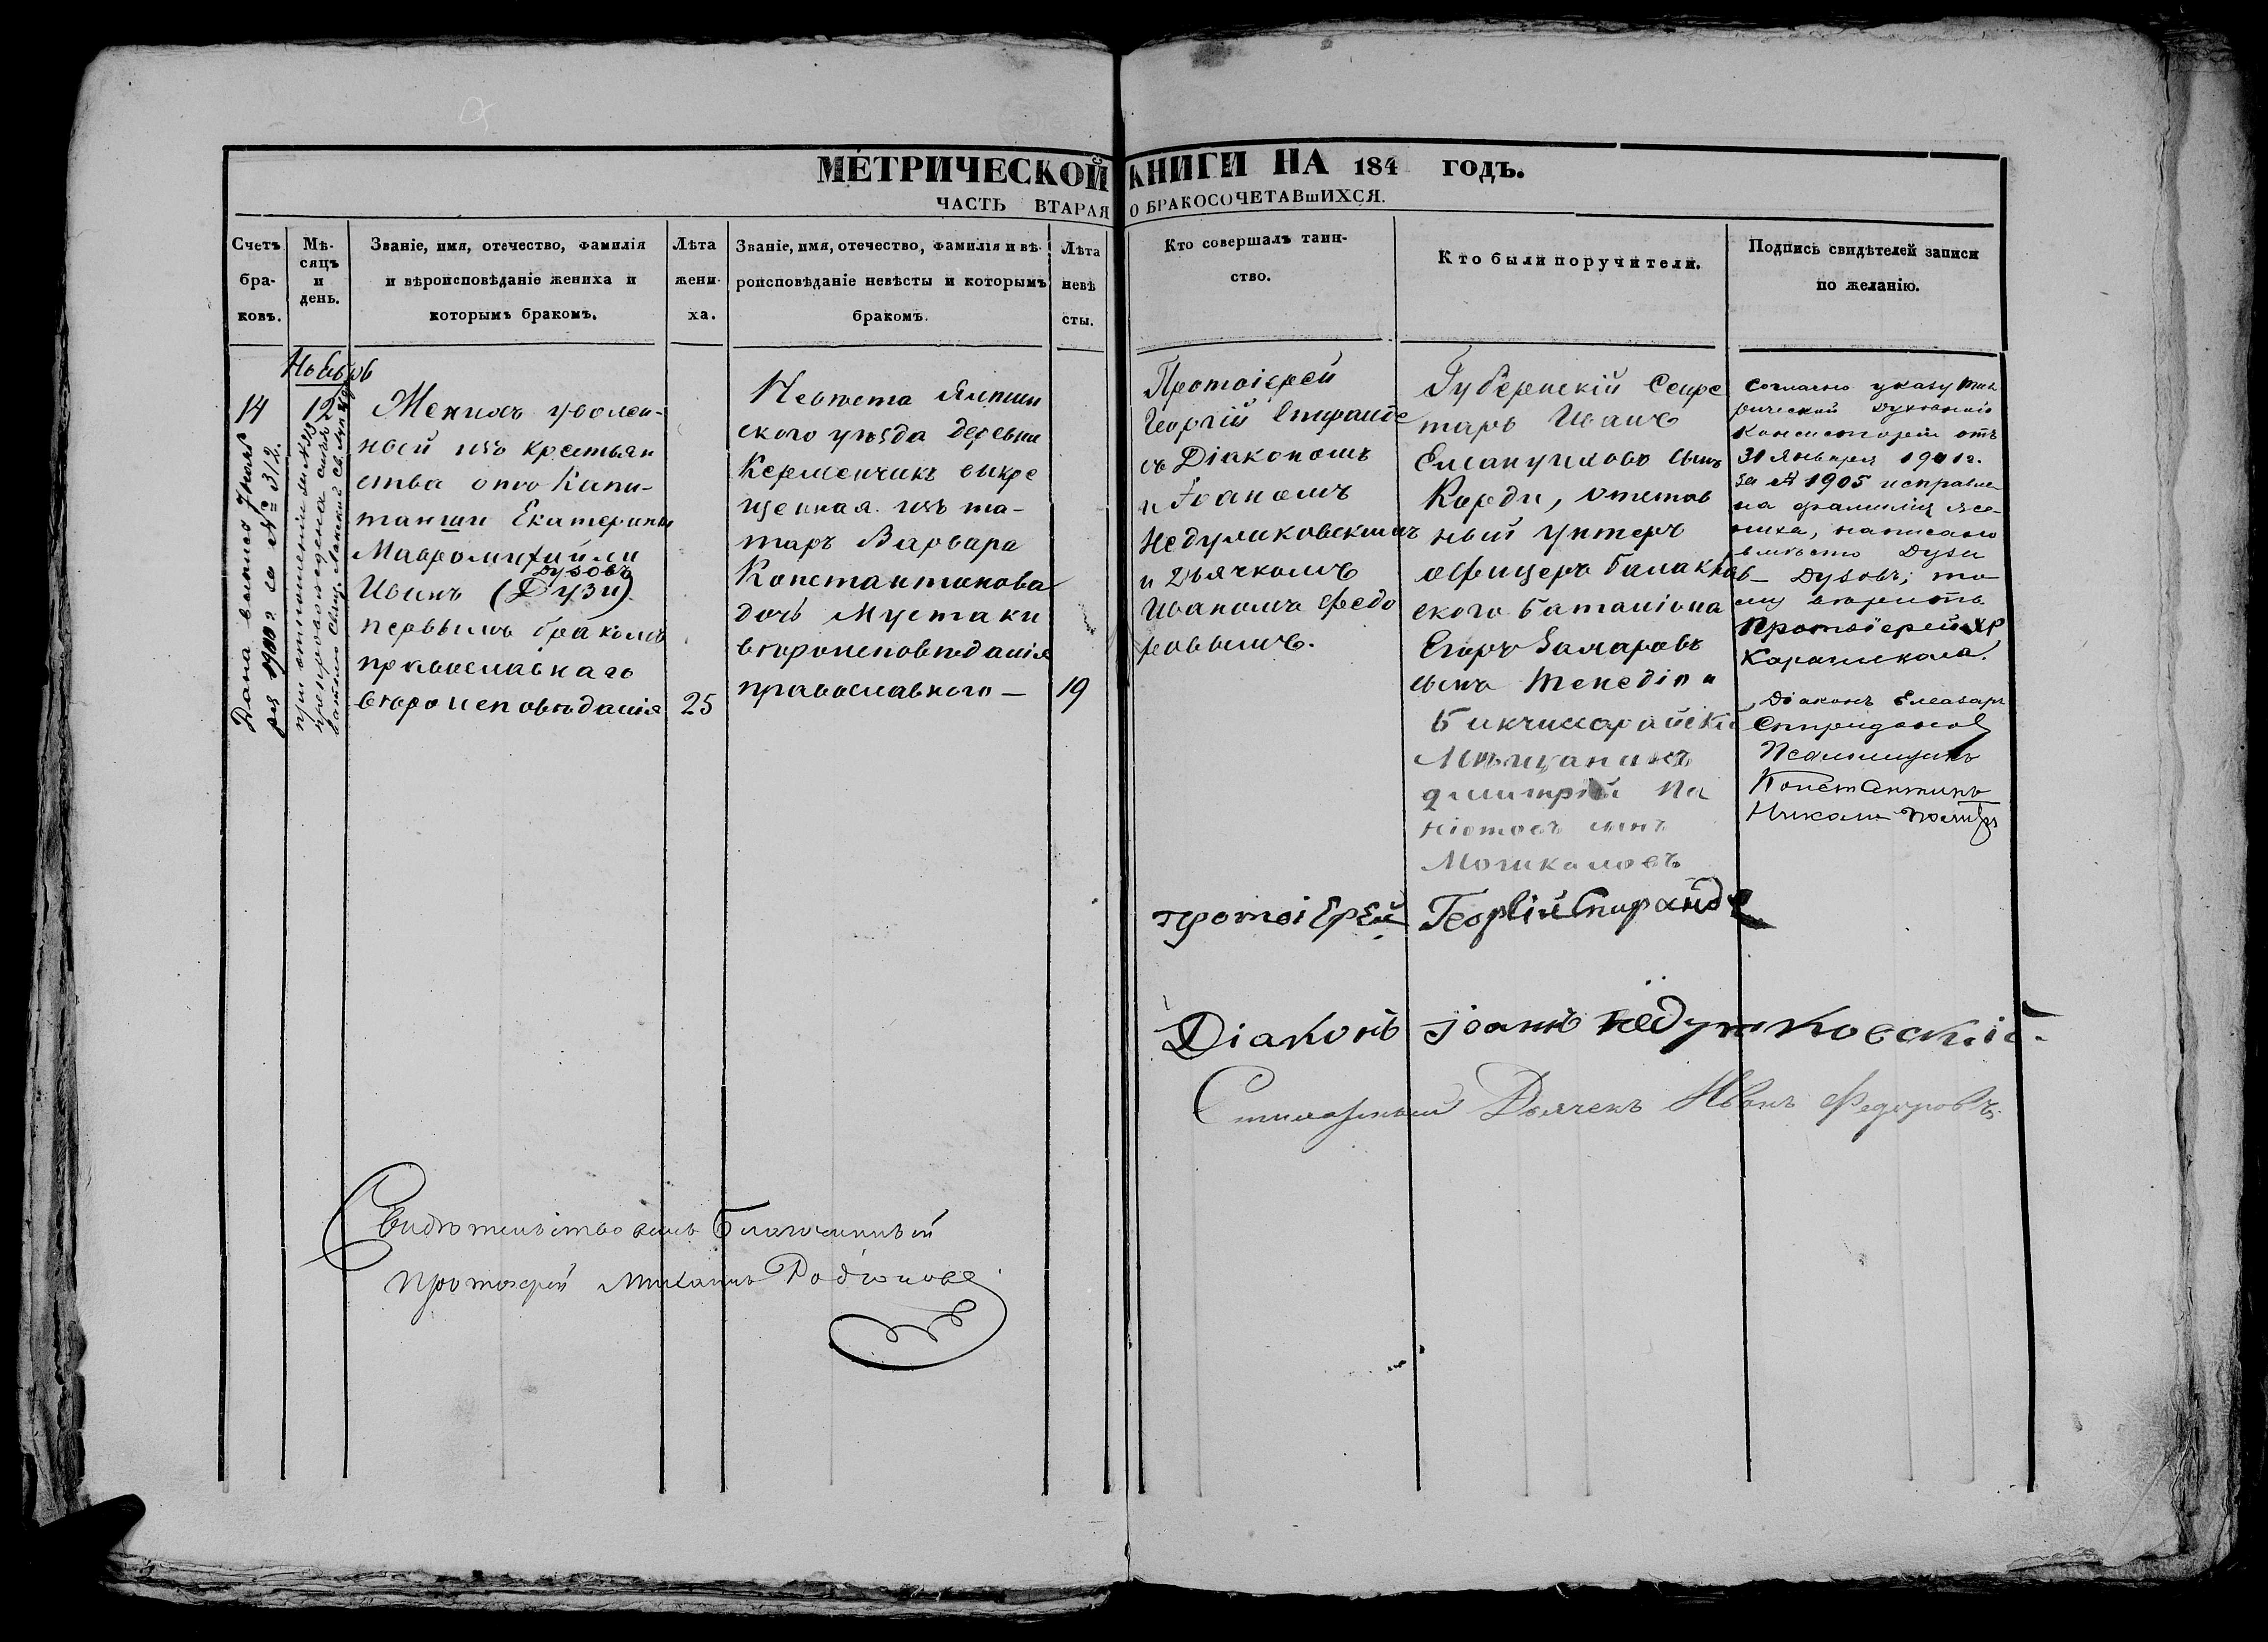 МЕТРИЧЕСКОЙ КНИГИ НА 184 ГОДЪ.
ЧАСТЬ ВТОРАЯ О БРАКОСОЧЕТАВШИХСЯ.
Счетъ бра- ковъ.
Мѣ- сяцъ и день.
Званіе, имя, отечество, фамилія
и вѣроисповѣданіе жениха и
которымъ бракомъ.
Лѣта жени- ха.
Званіе, имя, отечество, фамилія и вѣ-
роисповѣданіе невѣсты и которымъ
бракомъ.
Лѣта невѣ сты.
Кто совершалъ таин-
ство.
Кто были поручители.
Подпись свидѣтелей записи
по желанію.
Ноябрь
14
12
Дана выпись
ря 1900 г. за № 312.
при отношеніи за № 313
препровождена
Женихъ уволен-
ный изъ крестьян
ства отъ Капи-
танши Екатерины
Мавромихайли
Дузовъ
Иванъ (Дузи)
первымъ бракомъ
православнаго
вѣроисповѣданія
25
Невѣста Ялтин
скаго уѣзда деревни
Керменчикъ выкре
щенная изъ та-
таръ Варвара
Константинова
дочь Мустаки
вѣроисповѣданія
православного —
19
Протоіерей
Георгій Спиранде
съ Діакономъ
и Іоаномъ
Недулжковскимъ
и Дьячкомъ
Иваномъ Федо
ровымъ.
Губернскій Секре
тарь Иванъ
Емануиловъ сынъ
Корди, отстав
ный унтеръ
офицеръ балаклав
скаго баталіона
Егоръ Захаровъ
сынъ
Бахчисарайскій
Мѣщанинъ
Дмитрій Па
ніотовъ сынъ
Мошкаловъ
Согласно указу Тав
рической Духовной
Консисторіи отъ
31 Января 1901 г.
за № 1905 исправле
на фамилія же-
ниха, написано
вмѣсто Дузи
— Дузовъ; то
му вѣрить.
Протоіерей ХР
Діаконъ Елеазаръ
Спиридоновъ
Псаломщикъ
Константинъ
протоіерей Георгій Спиранде
Діаконъ іоанъ
Дьячекъ Иванъ Федоровъ.
Свидѣтельствовалъ Благочинный
Протоіерей Михаилъ Родіоновъ